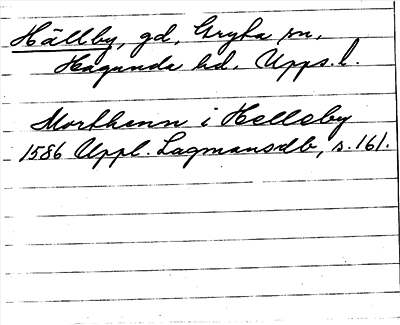 Hällby, gd, Gryta sn,
Hagunda hd. Upps. l.
Morthenn i Helleby
1586 Uppl. Lagmansdb, s. 161.